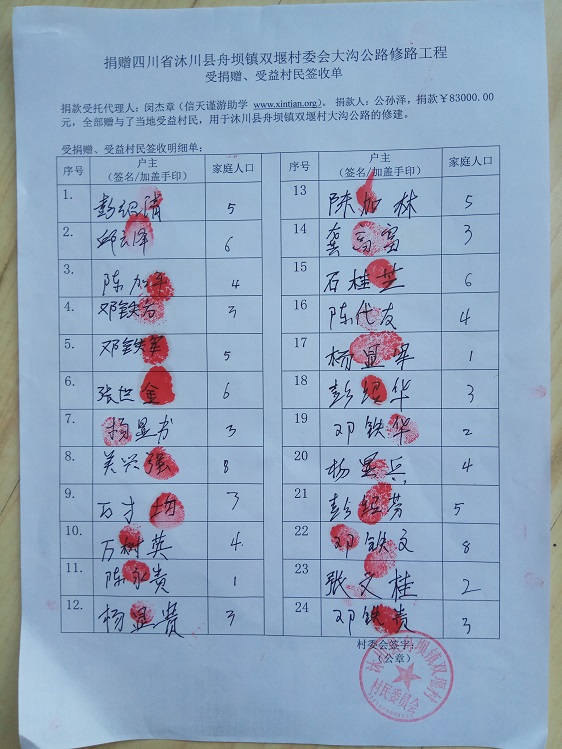 捐赠四川省沐川县舟坝镇双堰村委会大沟公路修路工程
受捐赠、受益村民签收单
捐款受托代理人：闵杰章（信天谨游助学 www.xintian.org）、捐款人：公孙泽，捐款￥83000.00
元，全部赠与了当地受益村民，用于沐川县舟坝镇双堰村大沟公路的修建。
受捐赠、受益村民签收明细单：
序号 户主（签名/加盖手印） 家庭人口 序号 户主（签名/加盖手印） 家庭人口
1. 彭绍清 5 13 陈加林 5
2. 邱云泽 6 14 龚高富 3
3. 陈加华 4 15 石桂芝 6
4. 邓铁方 3 16 陈代友 4
5. 邓铁军 5 17 杨显军 1
6. 张世金 6 18 彭绍华 3
7. 杨显书 3 19 邓铁华 2
8. 吴兴强 8 20 杨显兵 4
9. 万才均 3 21 彭绍芳 5
10. 万树英 4 22 邓铁文 8
11. 陈永贵 1 23 张文桂 2
12. 杨显贵 3 24 邓铁贵 3
村委会签字：
（公章）
坝镇双堰村
村民委员会